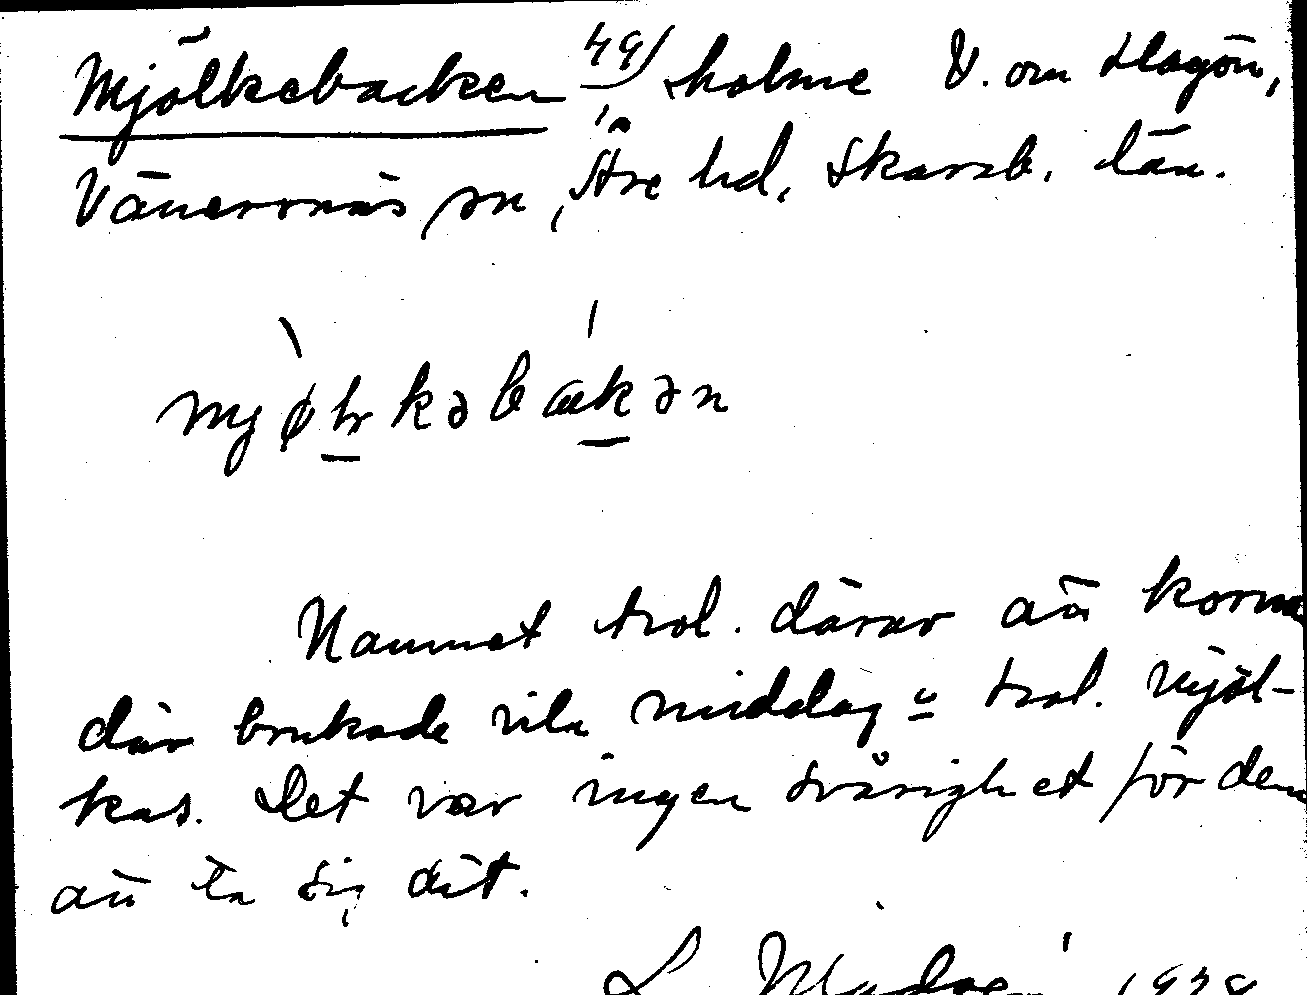 Mjölkebacken 49/ holme V. om Hagön,
Vänersnäs sn, Åse hd, Skarab. län.
Namnet trol. därav att korna
där brukade vila middag o trol. mjöl-
kas. Det var ingen svårighet för dem
att ta sig dit.
L. 1928